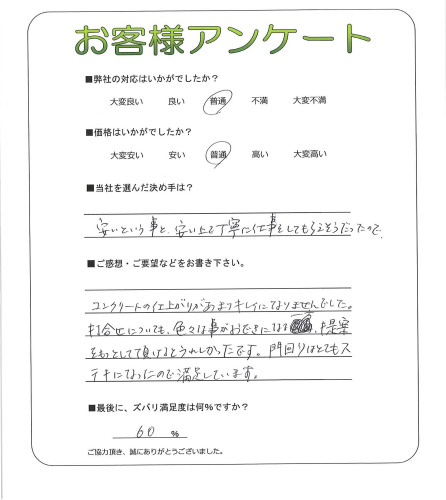 お客様アンケート
■弊社の対応はいかがでしたか?
大変良い 良い 普通 不満 大変不満
■価格はいかがでしたか?
大変安い 安い 普通 高い 大変高い
■当社を選んだ決め手は?
安いという事と、安い上で丁寧に仕事をしてもらえそうだったので、
■ご感想・ご要望などをお書き下さい。
コンクリートの仕上がりがあまりキレイになりませんでした。
打合せについても、色々な事がおできになる 、提案
をもっとして頂けるとうれしかったです。門回りはとてもス
テキになったので満足しています。
■最後に、ズバリ満足度は何%ですか?
60 %
ご協力頂き、誠にありがとうございました。